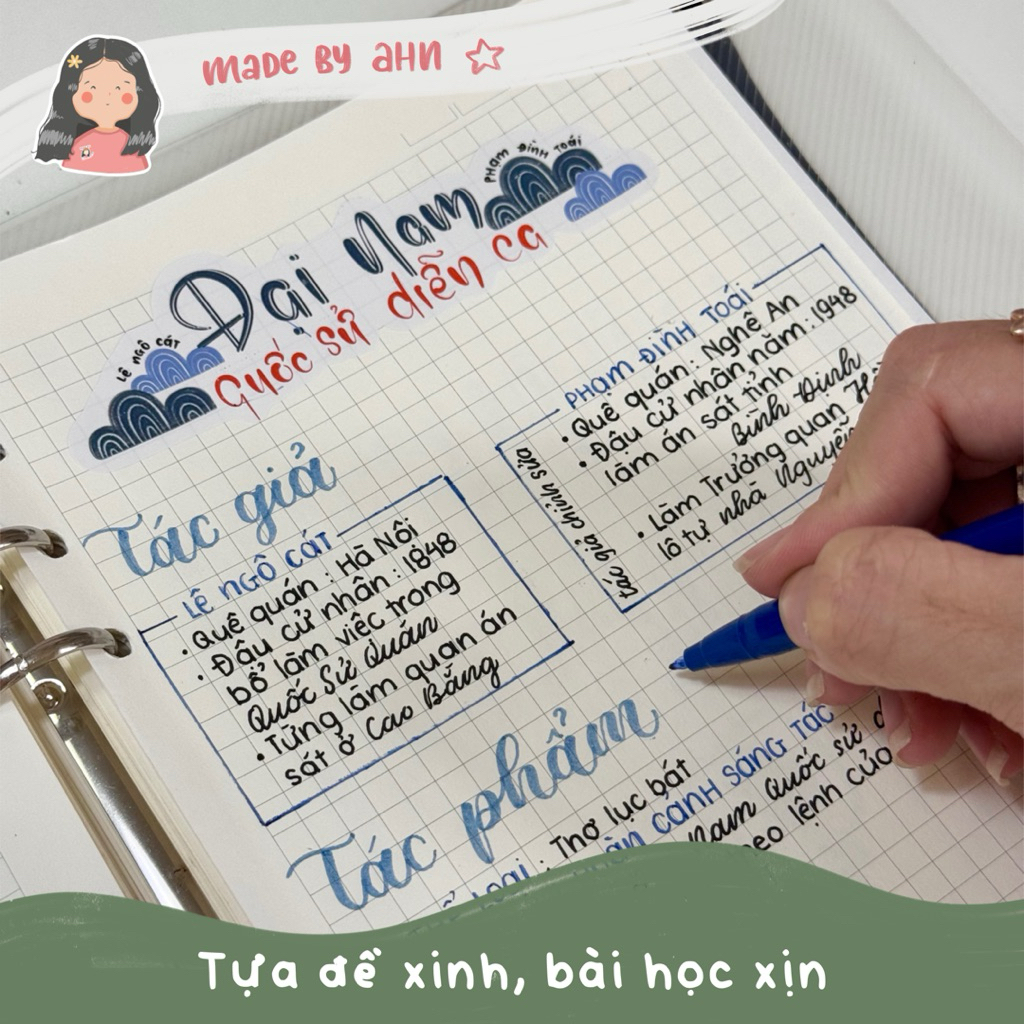 made by ahn
Phạm Đình Toái
Đại Nam
Quốc sử diễn ca
Lê Ngô Cát
Tác giả
Lê Ngô Cát
• Quê quán : Hà Nội
• Đậu cử nhân : 1848
bổ làm việc trong
Quốc Sử Quán
• Từng làm quan án
sát ở Cao Bằng
Phạm Đình Toái
• Quê quán : Nghệ An
• Đậu cử nhân năm : 1948
làm án sát tỉnh
Bình Định
• Làm Trưởng quan
lô tự nhà Nguyễn
tác giả chỉnh sửa
Tác phẩm
loại : Thơ lục bát
cảnh sáng tác
Nam Quốc sử
lệnh của
Tựa đề xinh, bài học xịn